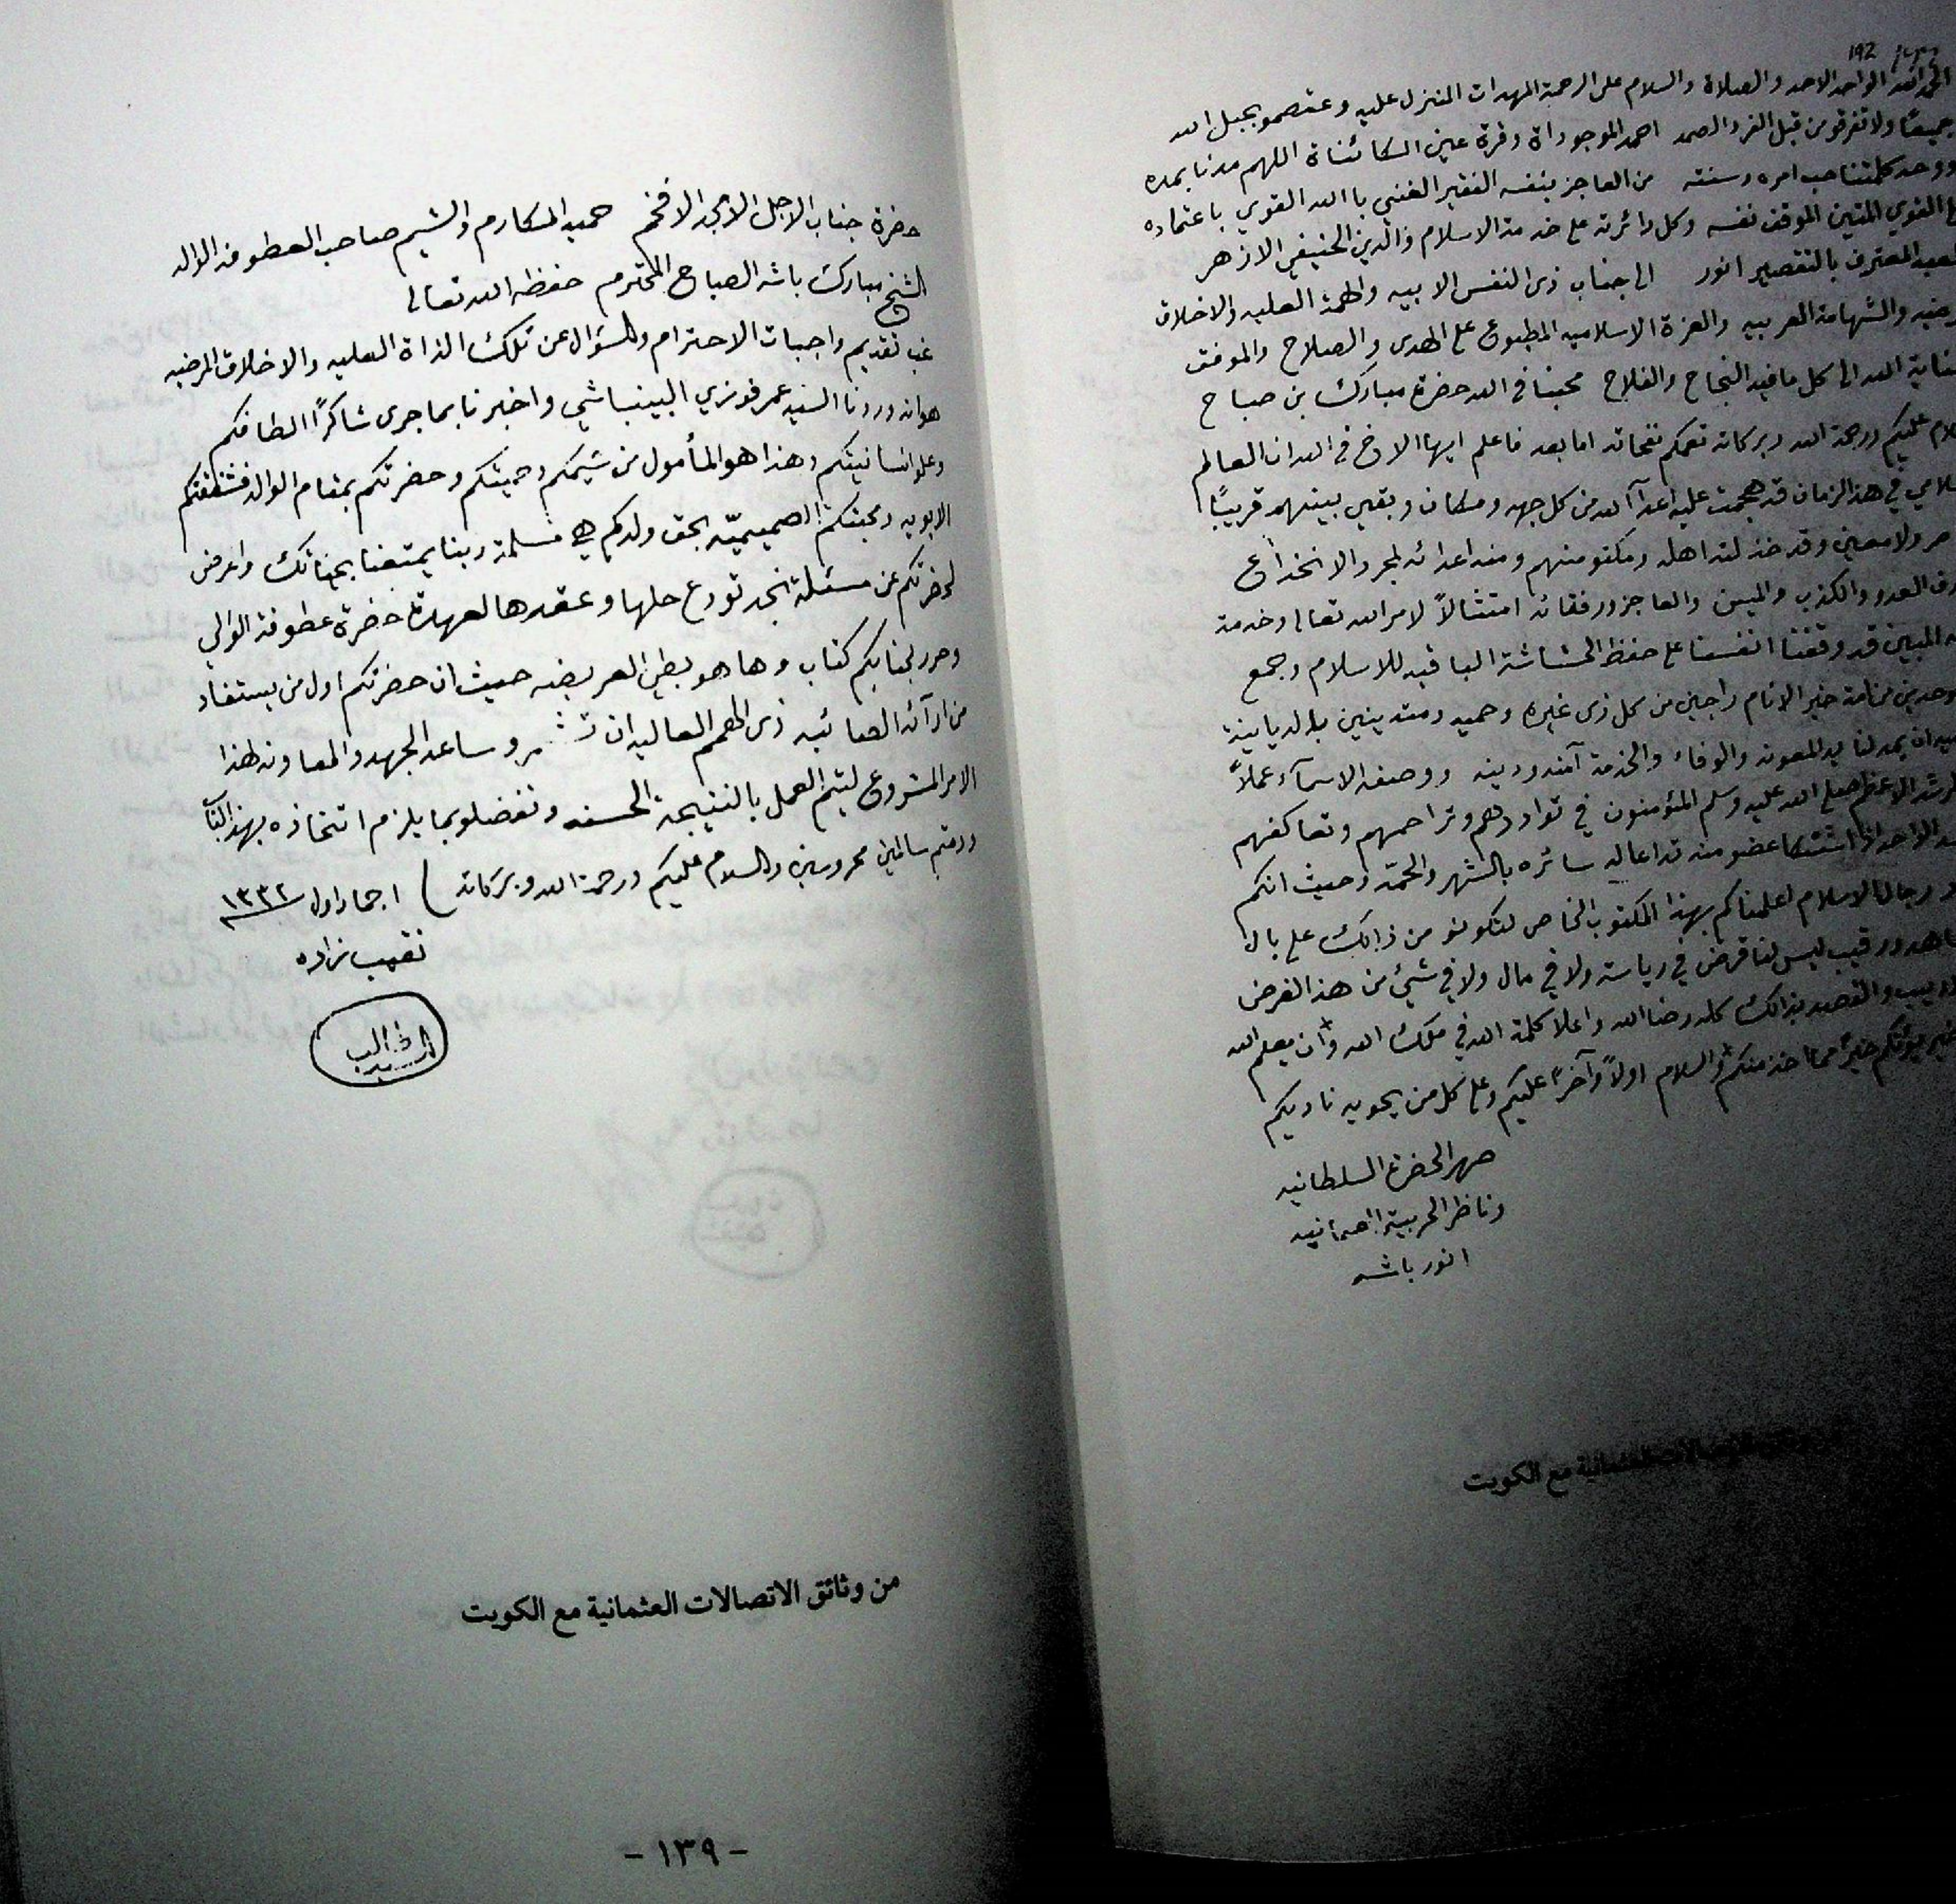 الحمد لله الواحد الاحد والصلاة والسلام على الرحمة المهدات المنزل عليه وعتصمو بحبل الله
جميعًا ولا تفرقو من قبل الفرد الصمد احمد الموجوداة وقرة عين الكائناة اللهم مدنا بمدده
ووحد كلمتنا حب امره وسنته من العاجز بنفسه الفقير الغني باالله القوي باعتماده
القوي المتين الموقف نفسه وكل دائرته على خدمة الاسلام والدين الحنيفي الازهر
المعترف بالتقصير انور الى جناب ذى النفس الابيه والهمة العليه والاخلاق
والشهامة العربيه والعزة الاسلاميه المطبوع على الهدى والصلاح والموفق
الله الى كل ما فيه النجاح والفلاح محبنا في الله حضرة مبارك بن صباح
عليكم ورحمة الله وبركاته تعمكم نفحاته اما بعد فاعلم ايها الاخ في الله ان العالم
في هذ الزمان قد هجمت عليه اعدآ الله من كل جهه ومكان وبقي بينهم قريبًا
ولا معين وقد خذلته اهله ومكنو منهم ومنه اعدائه لمجرد الانخداع
العدو والكذب والمين والعاجز ورفقائه امتثالاً لامر الله تعالى وخدمة
المبين قد وقفنا انفسنا على حفظ الحشاشة الباقيه للاسلام وجمع
خير الانام راجين من كل ذى غيرة وحميه ومتدينين بالديانية
ان يمد لنا يد المعونه والوفاء والخدمة آمنه ودينه ووصفه الاسمآء عملاً
الاعظم صلى الله عليه وسلم المئومنون في تواددهم وتراحمهم وتعاكفهم
الواحد اذا اشتكا عضو منه تداعا له سائره بالسهر والحمة وحيث انكم
رجال الاسلام اعلمناكم بهذا المكتوب الخاص لتكونو من ذالك على بال
ورقيب ليس لنا قرض في رياسة ولا في مال ولا في شيئ من هذ الغرض
والقصد بذالك كله رضا الله واعلا كلمة الله في ملك الله وان يعلم الله
يئوتكم خيرًا مما اخذ منكم والسلام اولاً وآخرًا عليكم وعلى كل من يحويه ناديكم
صهر الحضرة السلطانيه
وناظر الحربية العثمانيه
انور باشه
مع الكويت
حضرة جناب الاجل الامجد الافخم حميد المكارم والشيم صاحب العطوفه الوالد
الشيخ مبارك باشه الصباح المحترم حفظه الله تعالى
غب تقديم واجبات الاحترام والسؤال عن تلك الذاة العليه والاخلاق المرضيه
هوانه وردنا السيد عمر فوزي البينباشي واخبرنا بما جرى شاكرًا الطافكم
وعلو انسانيتكم وهذا هو المأمول من شيمكم وحميتكم وحضرتكم بمقام الوالد فشفقتكم
الابويه ومحبتكم الصميميّه بحق ولدكم هي مسلمة ربنا يمتعنا بحياتك واعرض
لحضرتكم عن مسئلة نجد تودع حلها وعقدها لعهدة حضرة عطوفة الوالي
وحرر لجنابكم كتاب وها هو بطي العريضه حيث ان حضرتكم اول من يستفاد
من ارآئه الصائبه ذى الهمم العاليه ان تشمرو ساعد الجهد والمعاونه لهذا
الامر المشروع ليتم العمل بالنتيجة الحسنه وتفضلو بما يلزم اتخاذه بهذ الباب
ودمتم سالمين محروسين والسلام عليكم ورحمة الله وبركاته ) ١ جماد اول ١٣٣٢
نقيب زاده
السيد طالب
من وثائق الاتصالات العثمانية مع الكويت
- ١٣٩ -